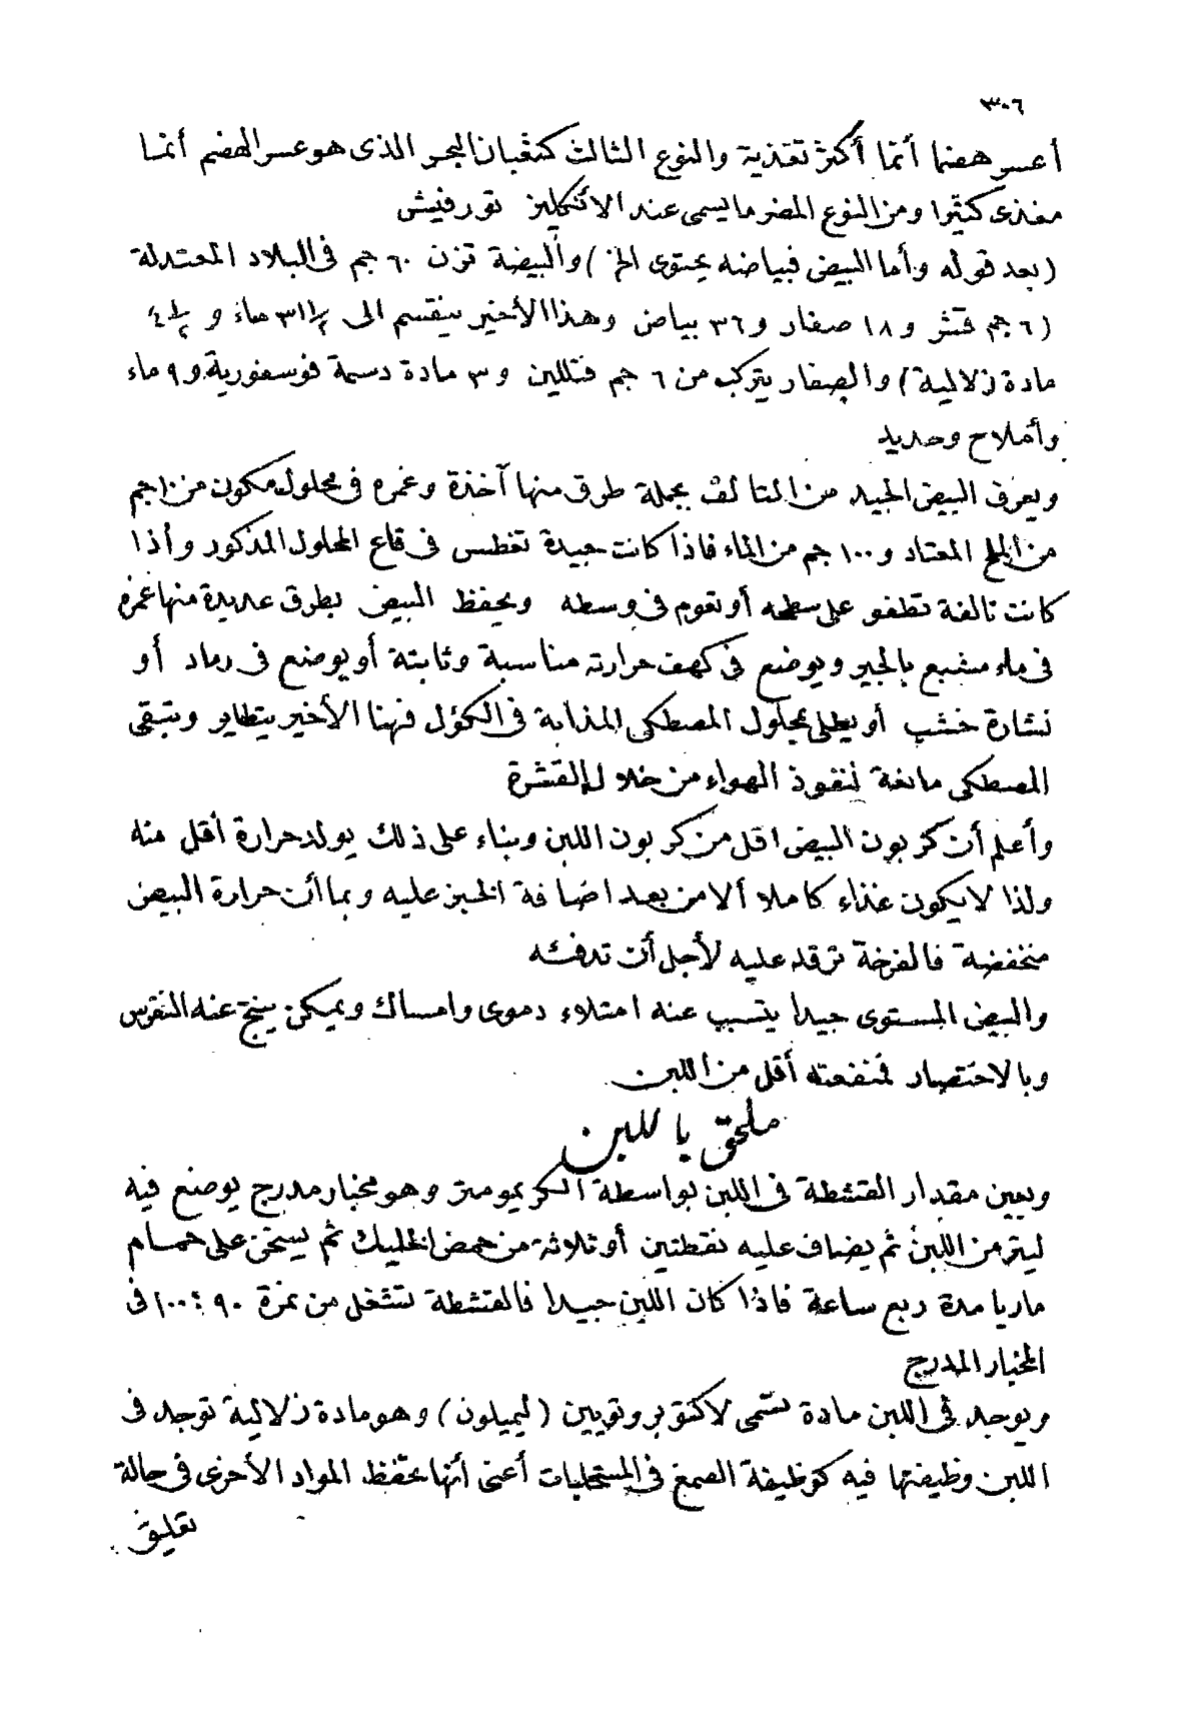 ٣٠٦
أعسر هضما أنما أكثر تغذية والنوع الثالث كثعبان البحر الذى هو عسر الهضم أنما
مغذى كثيرا ومن النوع المضر ما يسمى عند الأنكليز نورفيش
(بعد قوله وأما البيض فبياضه يحتوى الخ) والبيضة تزن ٦٠ جم فى البلاد المعتدلة
(٦ جم قشر و ١٨ صفار و ٣٦ بياض وهذا الأخير ينقسم الى ٣١ ١/٢ ماء و ٤ ١/٢
مادة زلالية) والصفار يتركب من ٦ جم فتللين و ٣ مادة دسمة فوسفورية و ٩ ماء
وأملاح وحديد
ويعرف البيض الجيد من التالف بجملة طرق منها آخذة وغمره فى محلول مكون من ١٠ جم
من الملح المعتاد و ١٠٠ جم من الماء فاذا كانت جيدة تغطس فى قاع المحلول المذكور وأذا
كانت تالفة تطفو على سطحه أو تقوم فى وسطه ويحفظ البيض بطرق عديدة منها غمره
فى ماء مشبع بالجير ويوضع فى كهف حرارته مناسبة وثابتة أو يوضع فى رماد أو
نشارة خشب أو يطلى بمحلول المصطكى المذابة فى الكؤل فهنا الأخير يتطاير وتبقى
المصطكى مانعة لنفوذ الهواء من خلال القشرة
وأعلم أن كربون البيض اقل من كربون اللبن وبناء على ذلك يولد حرارة أقل منه
ولذا لا يكون غذاء كاملا ألا من بعد اضافة الخبز عليه وبما أن حرارة البيض
منخفضة فالفرخة ترقد عليه لأجل أن تدفئه
والبيض المستوى جيدا يتسبب عنه امتلاء دموى وامساك ويمكن ينتج عنه النقرس
وبالاختصار فمنفعته أقل من اللبن
ملحق باللبن
ويعين مقدار القشطة فى اللبن بواسطة الكريمومتر وهو مخبار مدرج يوضع فيه
ليتر من اللبن ثم يضاف عليه نقطتين أو ثلاثة من حمض الخليك ثم يسخن على حمام
ماريا مدة ربع ساعة فاذا كان اللبن جيدا فالقشطة تشغل من نمرة ٩٠ : ١٠٠ فى
المخبار المدرج
ويوجد فى اللبن مادة تسمى لاكتوبروتويين (ليميلون) وهو مادة زلالية توجد فى
اللبن وظيفتها فيه كوظيفة الصمغ فى المستحلبات أعنى أنها تحفظ المواد الأخرى فى حالة
تعليق